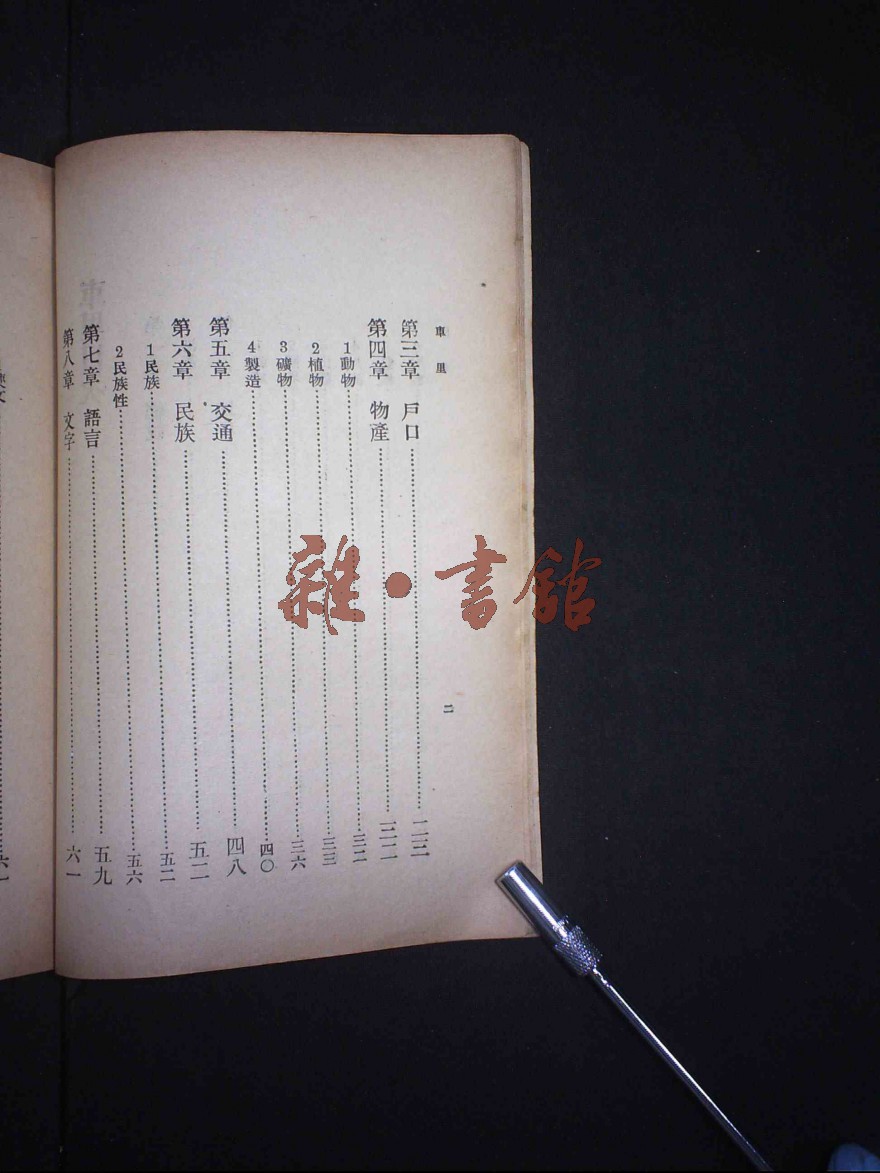 車里
二
第三章 戶口………二三
第四章 物產………三二
1動物………三二
2植物………三三
3礦物………三六
4製造………四〇
第五章 交通………四八
第六章 民族………五二
1民族………五二
2民族性………五六
第七章 語言………五九
第八章 文字………六一
雜·書館